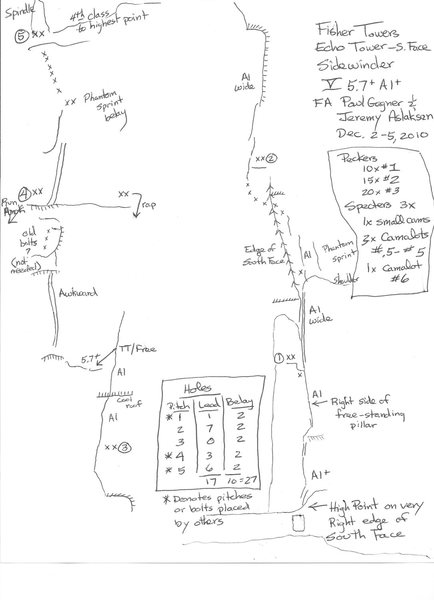 Fisher Towers
Echo Tower - S. Face
Sidewinder
V 5.7+ A1+
FA Paul Gagner &
Jeremy Aslaksen
Dec. 2-5, 2010
Peckers
10x #1
15x #2
20x #3
Specters 3x
1x small cams
3x Camalots
#.5 - #5
1x Camalot
#6
Spindle
5 xx
4th class
to highest point
xx Phantom
sprint
belay
4 xx
xx
rap
old
bolts
?
(not
needed)
Awkward
5.7+
TT/Free
A1
cool
roof
A1
xx 3
A1
wide
xx 2
Edge of
South Face
A1
Phantom
sprint
Shoulder
A1
wide
1 xx
x
A1
Right side of
free-standing
pillar
A1+
High Point on very
Right edge of
South Face
Holes
Pitch Lead Belay
* 1 1 2
2 7 2
3 0 2
* 4 3 2
* 5 6 2
17 10 = 27
* Denotes pitches
or bolts placed
by others